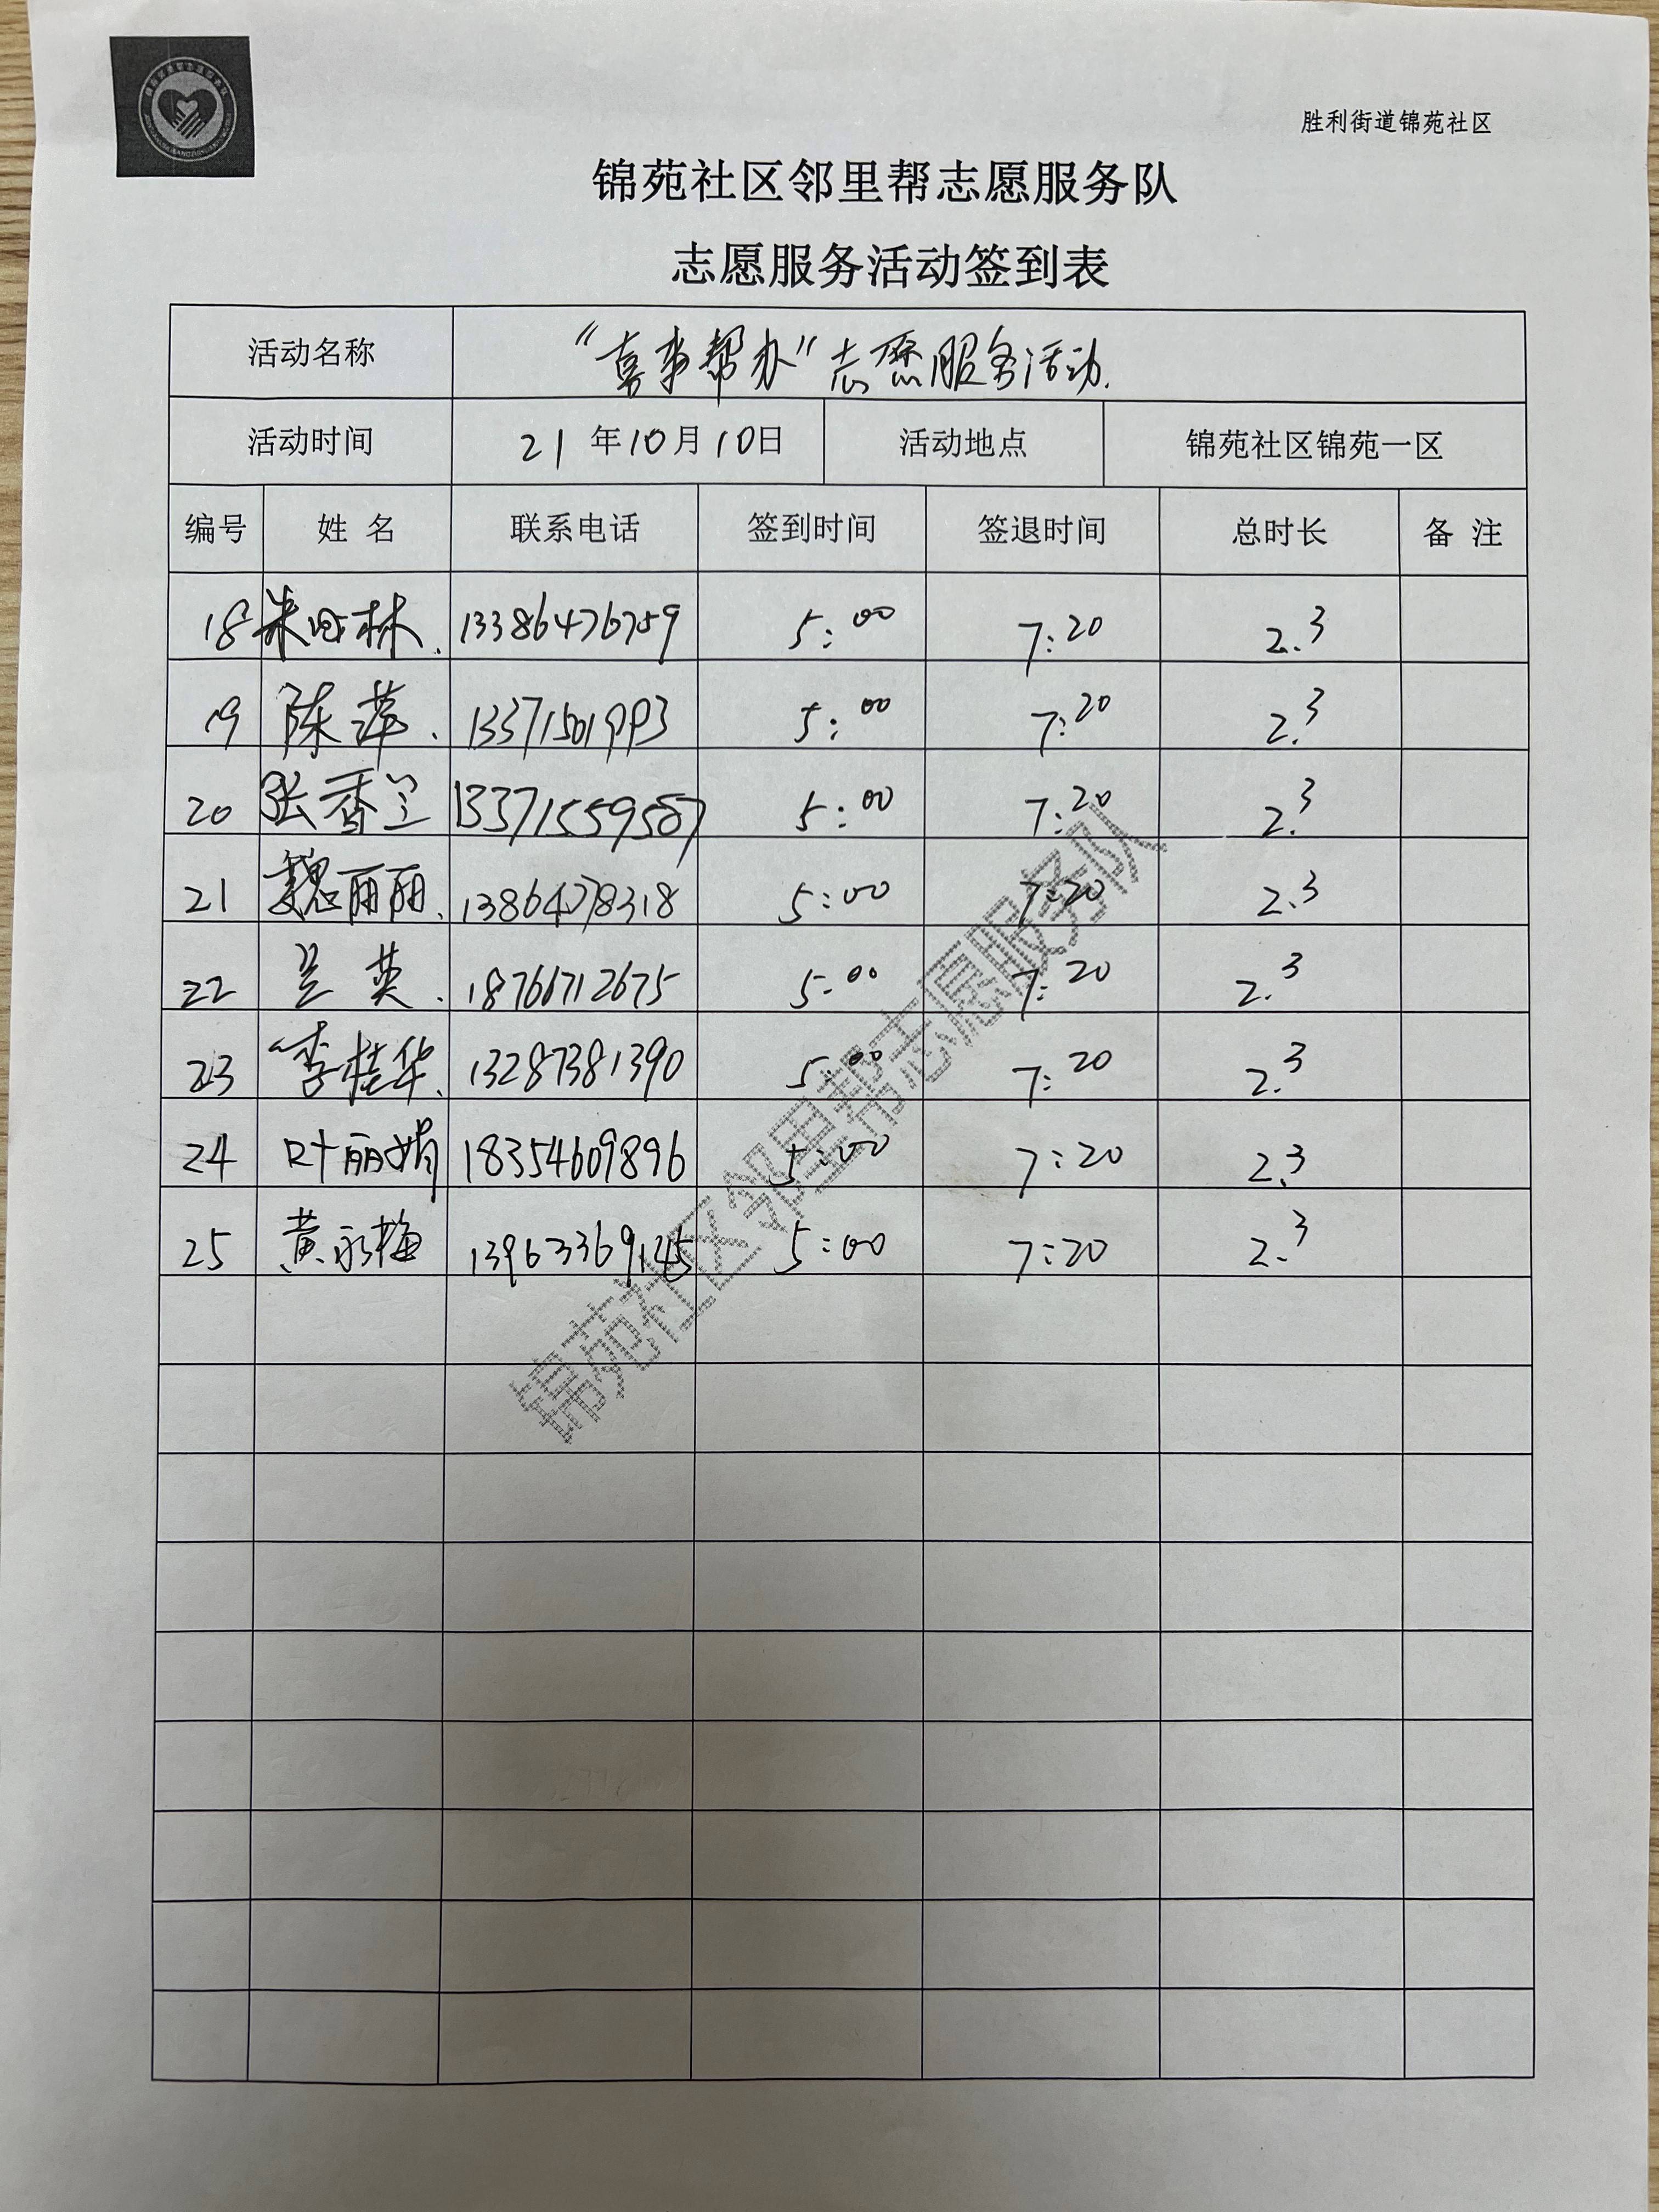 胜利街道锦苑社区
锦苑社区邻里帮志愿服务队
志愿服务活动签到表
活动名称 “喜事帮办”志愿服务活动.
活动时间 21年10月10日 活动地点 锦苑社区锦苑一区
编号 姓名 联系电话 签到时间 签退时间 总时长 备注
18 朱 林. 13386476759 5:00 7:20 2.3
19 陈萍. 13371501993 5:00 7:20 2.3
20 张香兰 13371559587 5:00 7:20 2.3
21 魏丽丽. 13864278318 5:00 7:20 2.3
22 兰英. 18766712675 5:00 7:20 2.3
23 李桂华. 13287381390 5:00 7:20 2.3
24 叶丽娟 18354609896 5:00 7:20 2.3
25 黄永梅 13963369145 5:00 7:20 2.3
锦苑社区邻里帮志愿服务队